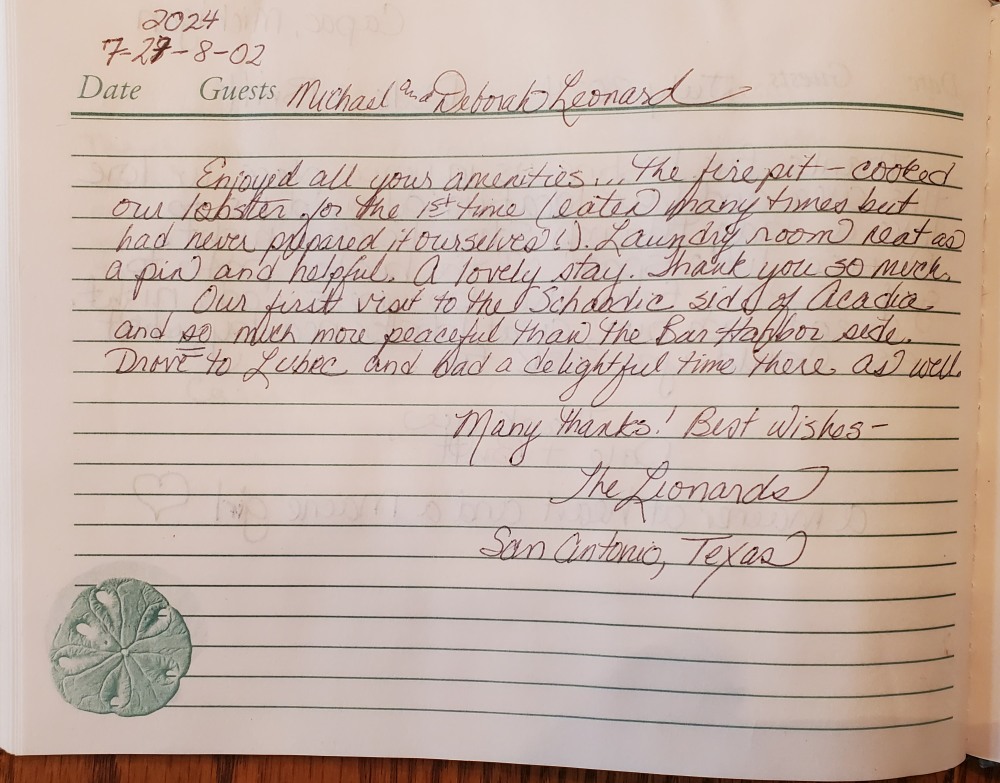 2024
7-27-8-02
Date Guests Michael and Deborah Leonard
Enjoyed all your amenities... the fire pit - cooked
our lobster for the 1st time (eaten many times but
had never prepared it ourselves!). Laundry room neat as
a pin and helpful. A lovely stay. Thank you so much.
Our first visit to the Schoodic side of Acadia
and so much more peaceful than the Bar Harbor side.
Drove to Lubec and had a delightful time there as well.
Many thanks! Best Wishes-
The Leonards
San Antonio, Texas